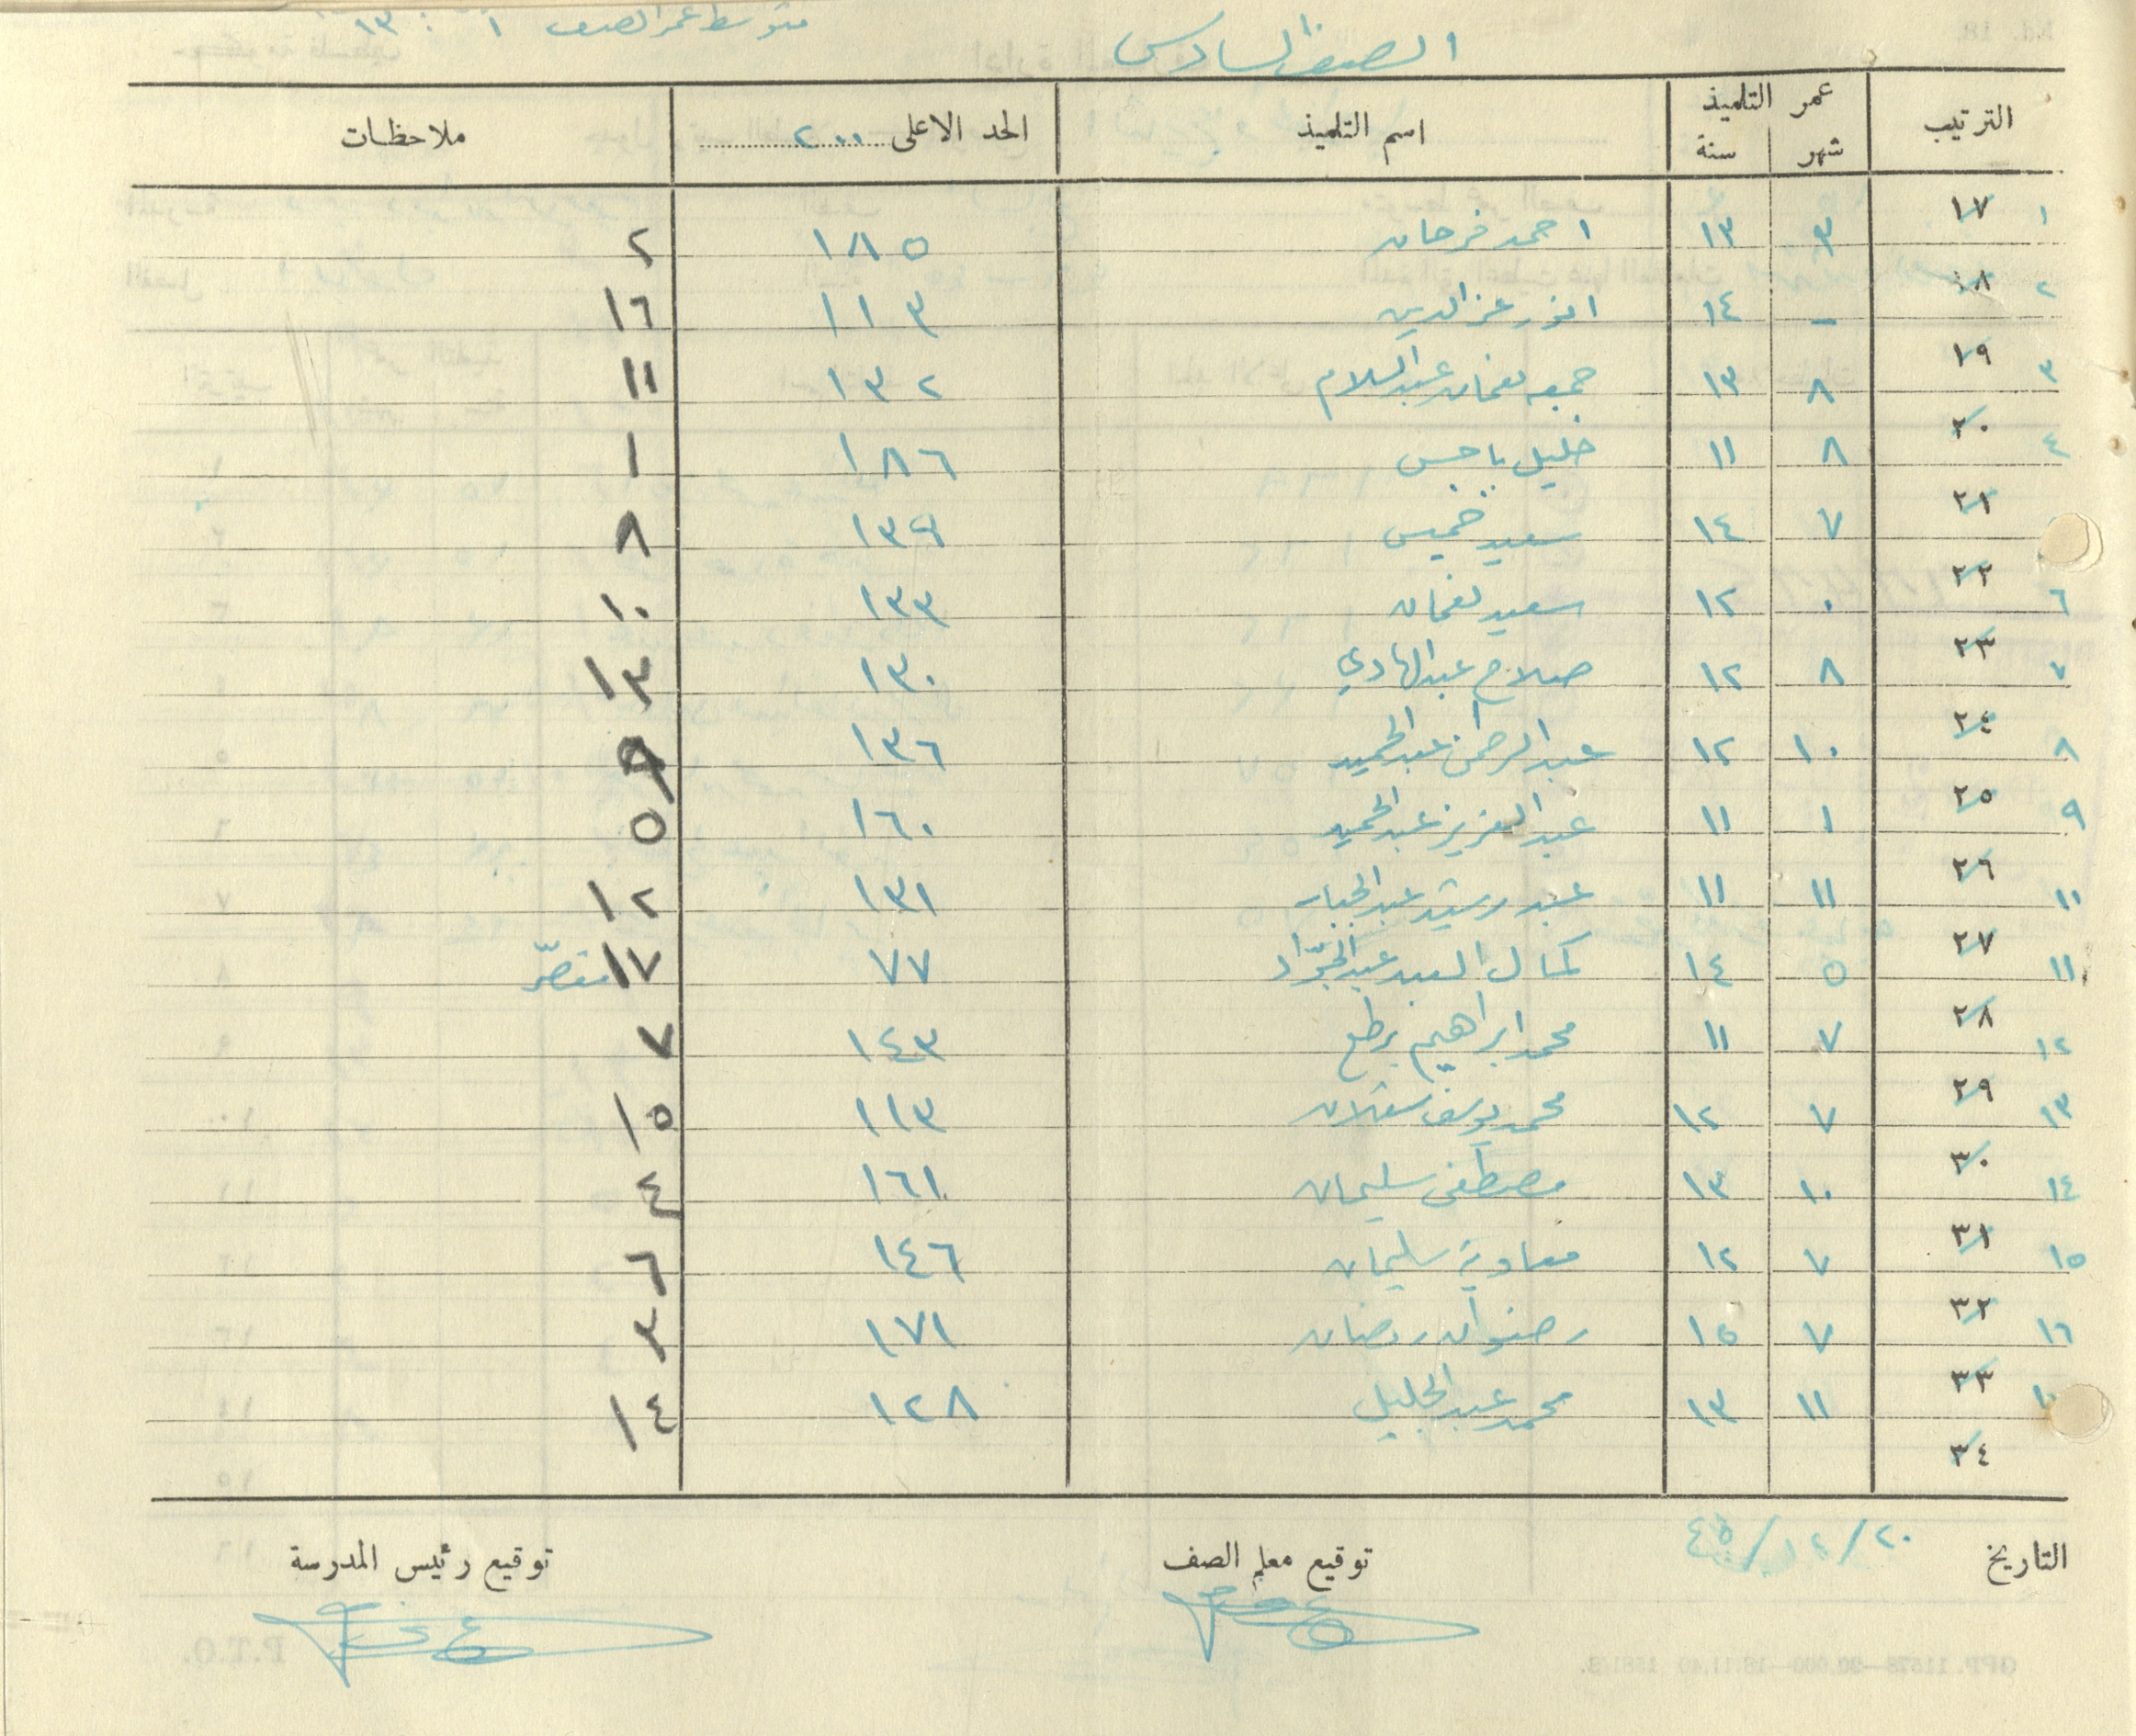 الصف السادس
متوسط عمر الصف ١ : ١٣
الترتيب عمر التلميذ اسم التلميذ الحد الاعلى ٢٠٠ ملاحظات
شهر سنة
١ ١٧ ٩ ١٣ احمد فرحان ١٨٥ ٢
٢ ١٨ - ١٤ انور عز الدين ١١٣ ١٦
٣ ١٩ ٨ ١٣ جمعه نعمان عبد السلام ١٣٢ ١١
٤ ٢٠ ٨ ١١ خليل باجس ١٨٦ ١
٢١ ٧ ١٤ سعيد خميس ١٣٩ ٨
٦ ٢٢ ٠ ١٢ سعيد نعمان ١٣٣ ١٠
٧ ٢٣ ٨ ١٢ صلاح عبد الهادي ١٣٠ ١٣
٨ ٢٤ ١٠ ١٢ عبد الرحمن عبد الحميد ١٣٦ ٩
٩ ٢٥ ١ ١١ عبد العزيز عبد الحميد ١٦٠ ٥
١٠ ٢٦ ١١ ١١ عبد رشيد عبد الجبار ١٣١ ١٢
١١ ٢٧ ٥ ١٤ كمال السيد عبد الجواد ٧٧ ١٧ مقصّر
١٢ ٢٨ ٧ ١١ محمد ابراهيم برطع ١٤٣ ٧
١٣ ٢٩ ٧ ١٢ محمد يوسف ١١٣ ١٥
١٤ ٣٠ ١٠ ١٣ مصطفى سليمان ١٦١ ٤
١٥ ٣١ ٧ ١٢ معاوية سليمان ١٤٦ ٦
١٦ ٣٢ ٧ ١٥ رضوان رمضان ١٧١ ٣
٣٣ ١١ ١٣ محمد عبد الجليل ١٢٨ ١٤
٣٤
التاريخ ٢٠/١٢/٤٥ توقيع معلم الصف توقيع رئيس المدرسة